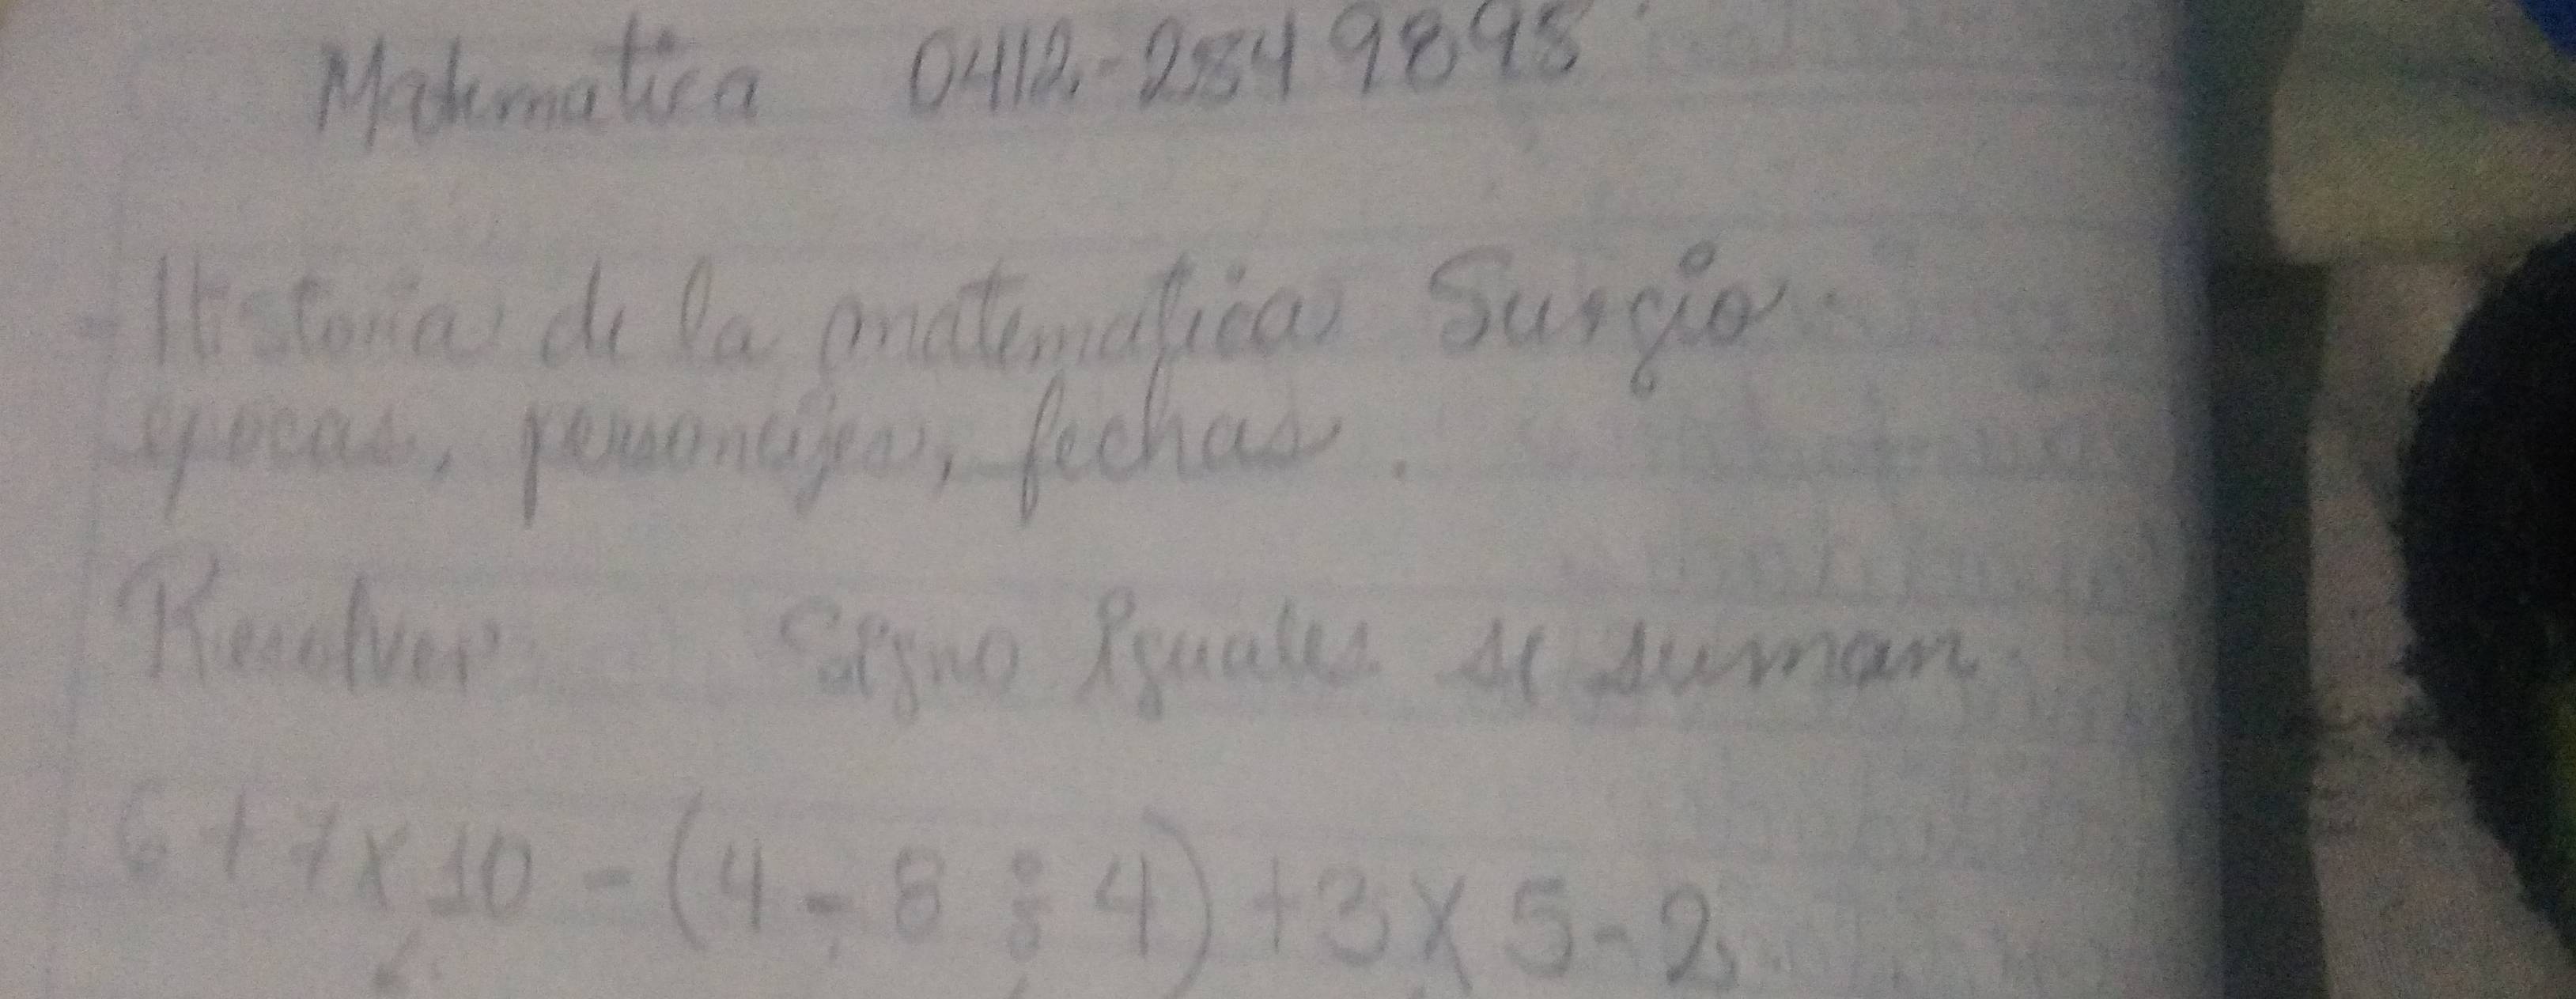 Matematica 0412-2849898
- Historia de la matematica Surgio.
epocas, personajes, fechas.
Resolver Signo Iguales se suman
6 + 7 x 10 - (4 - 8 ÷ 4) + 3 x 5 - 2